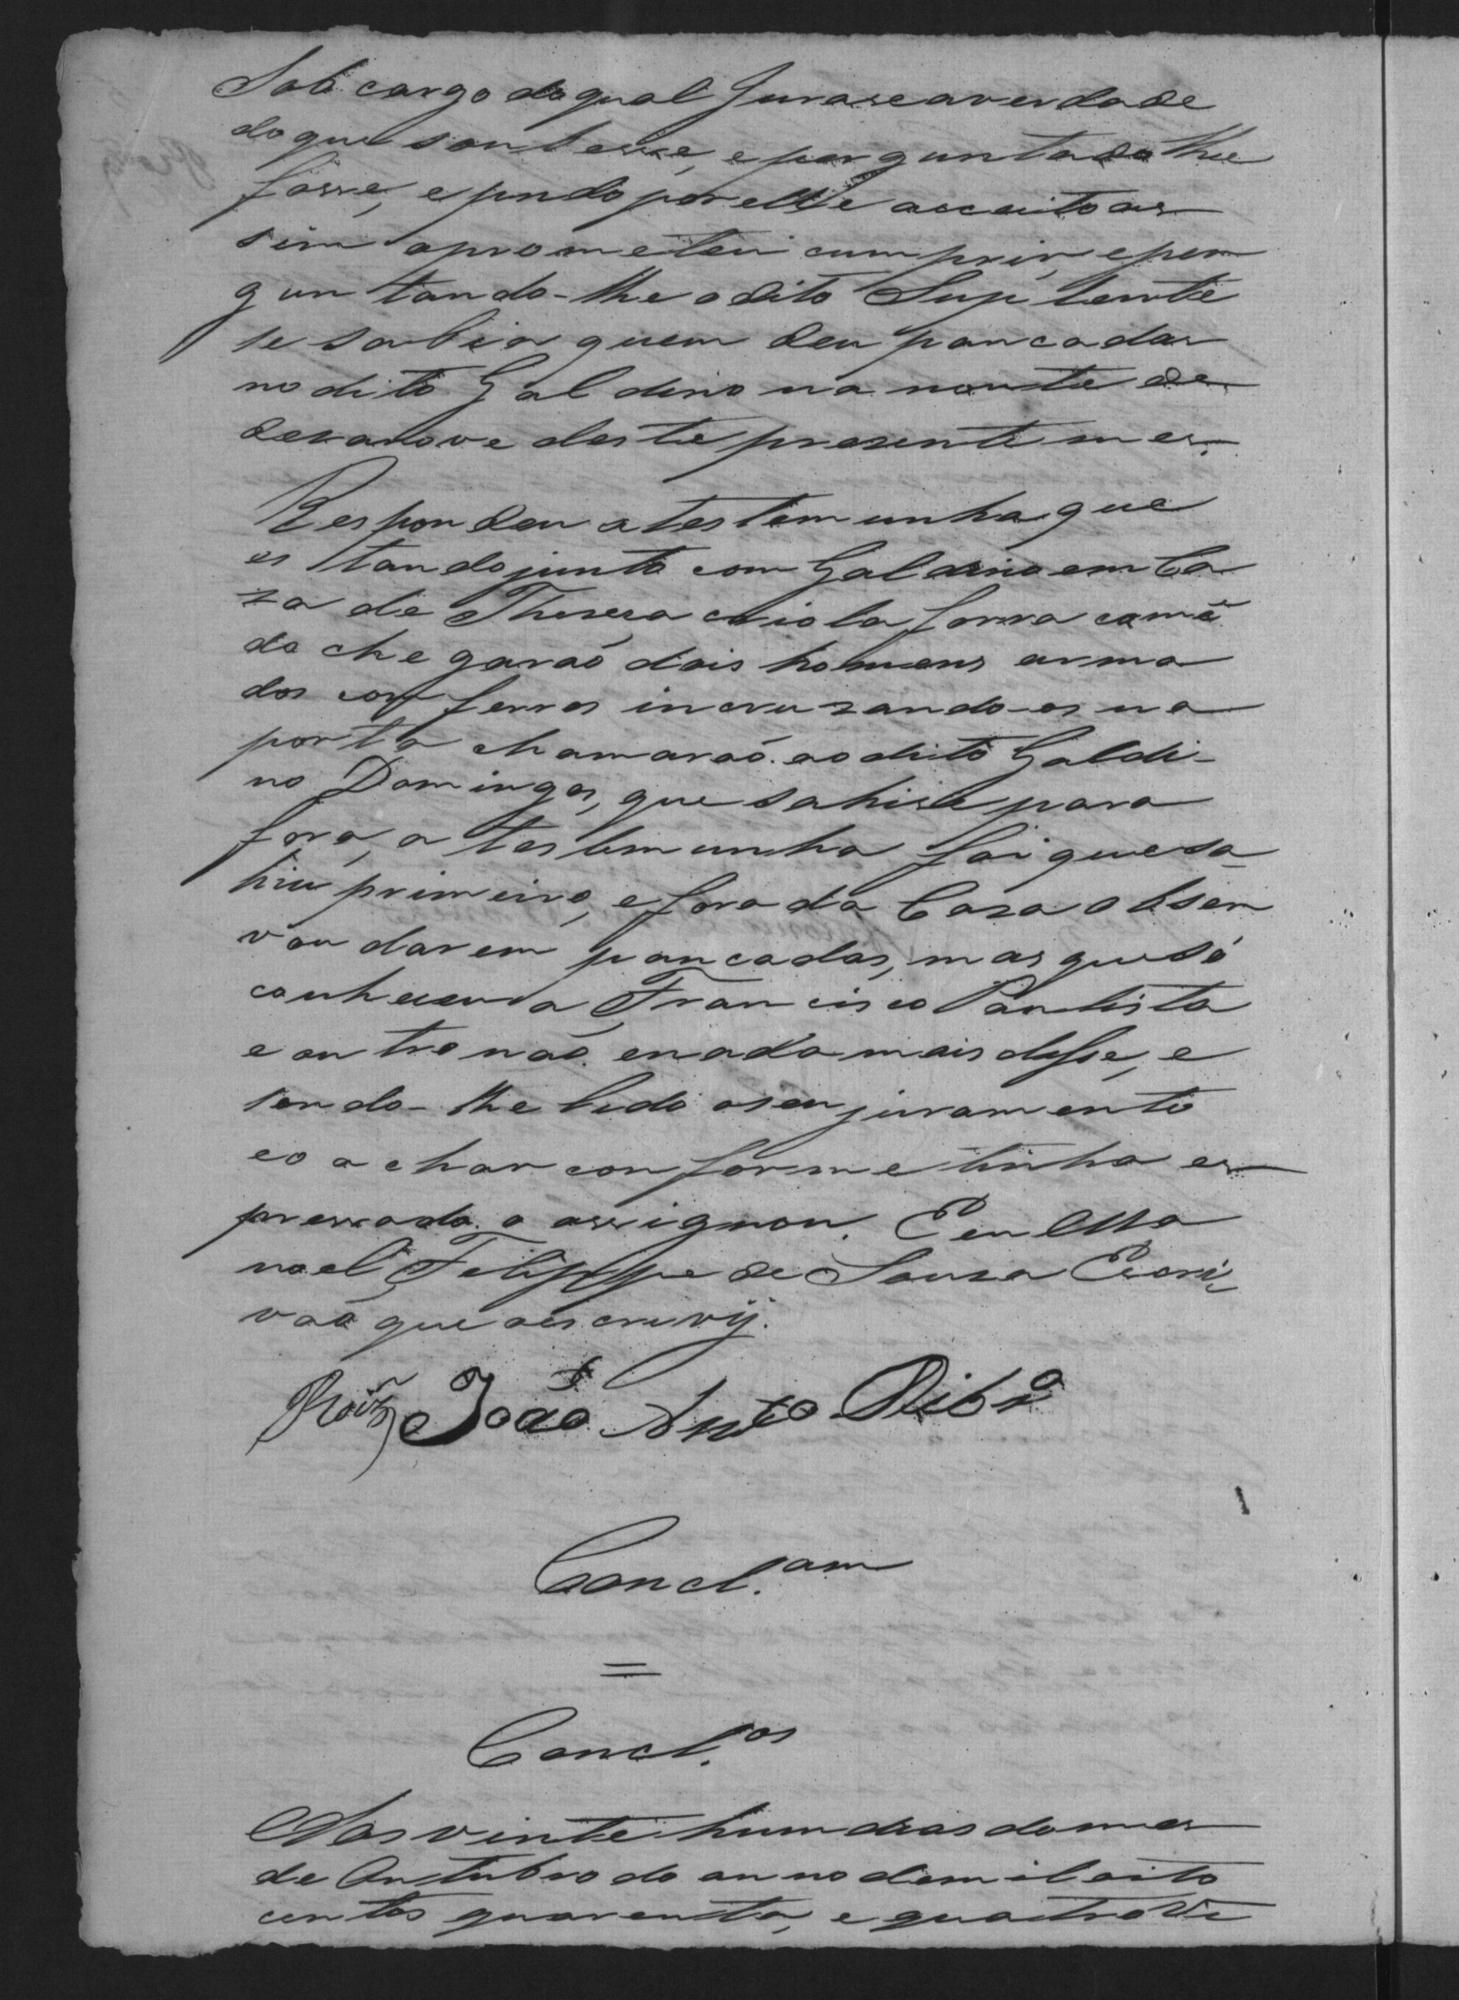 Sob cargo do qual Jurase averdade
doque soubesse, e perguntado lhe
fosse, e sendo por elle acceito as
sim oprometeu cumprir, e per
guntando-lhe o dito Suplente
se sabia quem deu pancadas
no dito Galdino na noute de
dezanove deste presente mes.
Respondeu a testemunha que
estando junto com Galdino em Ca
za de Thereza criola forra comẽ
do chegaraõ dois homens arma
dos com ferros incruzando-os na
porta chamaraõ ao dito Galdi-
no Domingos, que sahise para
fora, a testemunha foi que sa
hiu primeiro, e fora da Caza obser
vou darem pancadas, mas que só
conheceu a Francisco Paulista
e outro naõ. e nada mais disse, e
sendo-lhe lido o seu juramento
eo achar conforme tinha es
pressado o assignou. E eu Ma
noel Felippe de Souza Escri
vaõ que oescrevÿ.
João Anto Ribro
Concl.am
=
Concl.os
Aos vinte hum dias do mes
de Outubro do anno de mil oito
centos quarenta, e quatro